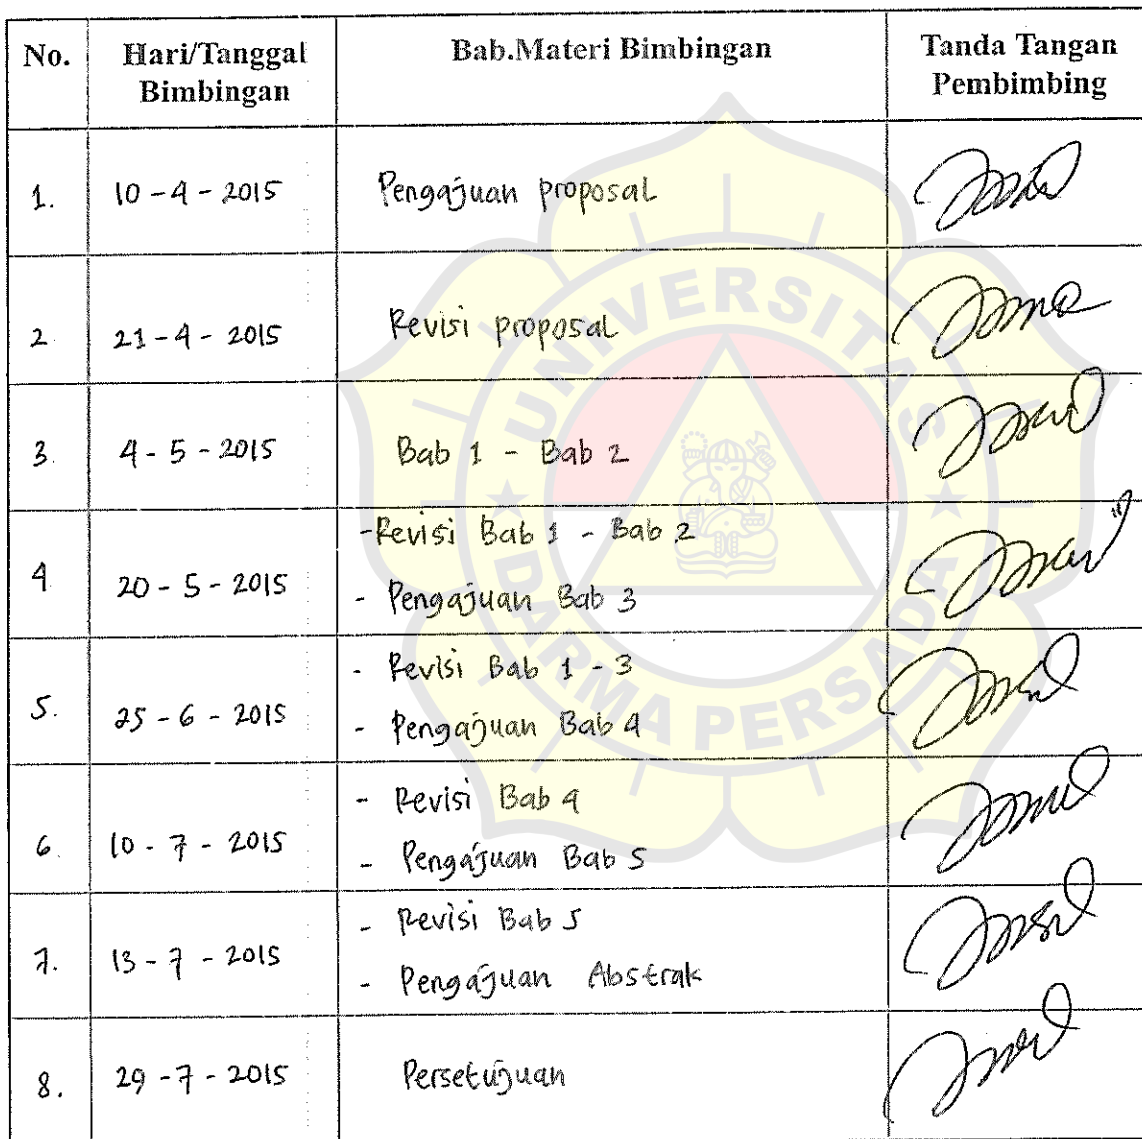 No. Hari/Tanggal Bab.Materi Bimbingan Tanda Tangan
Bimbingan Pembimbing
1. 10 - 4 - 2015 Pengajuan proposal
2. 21 - 4 - 2015 Revisi proposal
3. 4 - 5 - 2015 Bab 1 - Bab 2
4. 20 - 5 - 2015 - Revisi Bab 1 - Bab 2
- Pengajuan Bab 3
5. 25 - 6 - 2015 - Revisi Bab 1 - 3
- Pengajuan Bab 4
6. 10 - 7 - 2015 - Revisi Bab 4
- Pengajuan Bab 5
7. 13 - 7 - 2015 - Revisi Bab 5
- Pengajuan Abstrak
8. 29 - 7 - 2015 Persetujuan
UNIVERSITAS
DARMA PERSADA